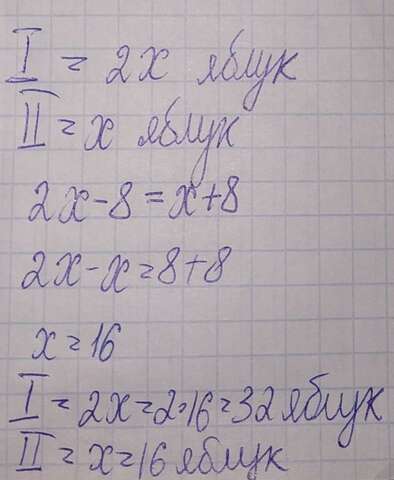 I = 2x яблук
II = x яблук
2x-8=x+8
2x-x=8+8
x=16
I = 2x=2·16=32 яблук
II = x=16 яблук